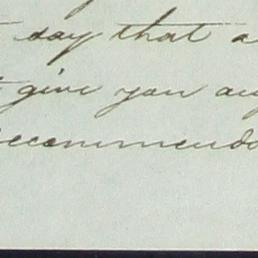 say that a
give you any
recommenda